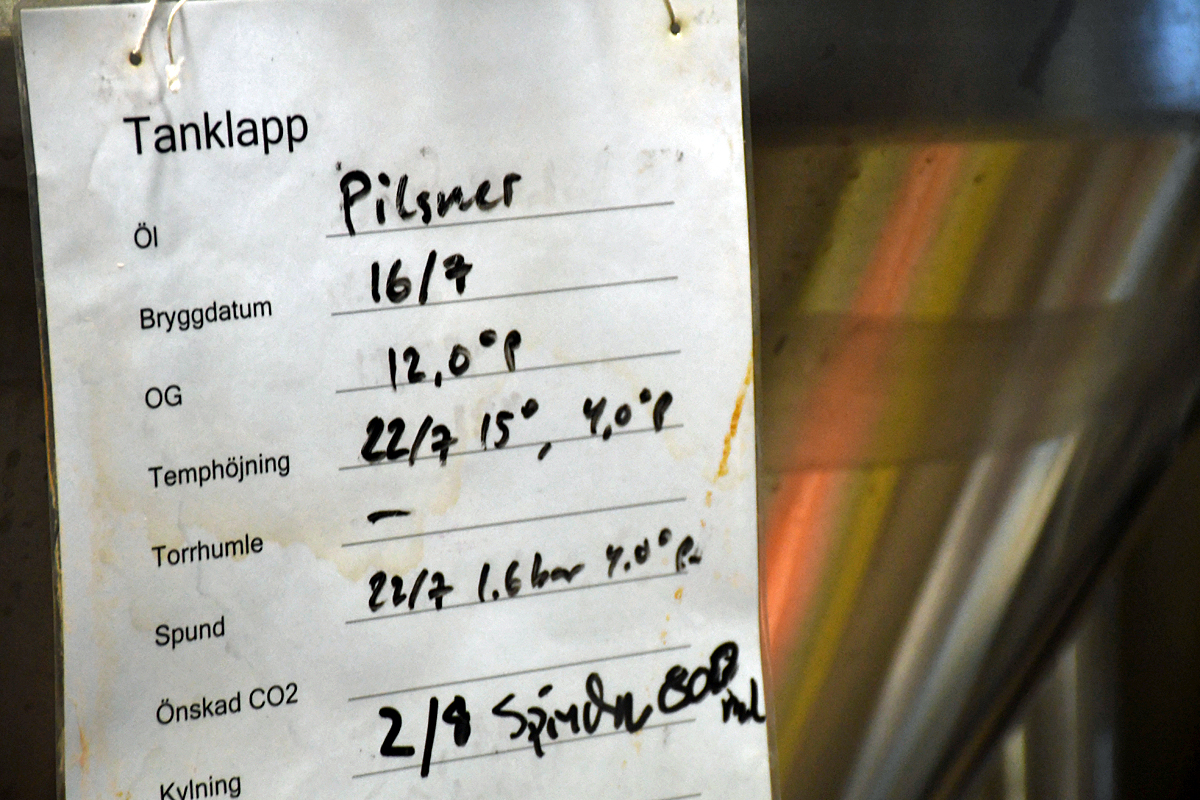 Tanklapp
Öl Pilsner
Bryggdatum 16/7
OG 12,0°P
Temphöjning 22/7 15°, 4,0°P
Torrhumle –
Spund 22/7 1.6 bar 4.0°P
Önskad CO2
Kylning 2/8